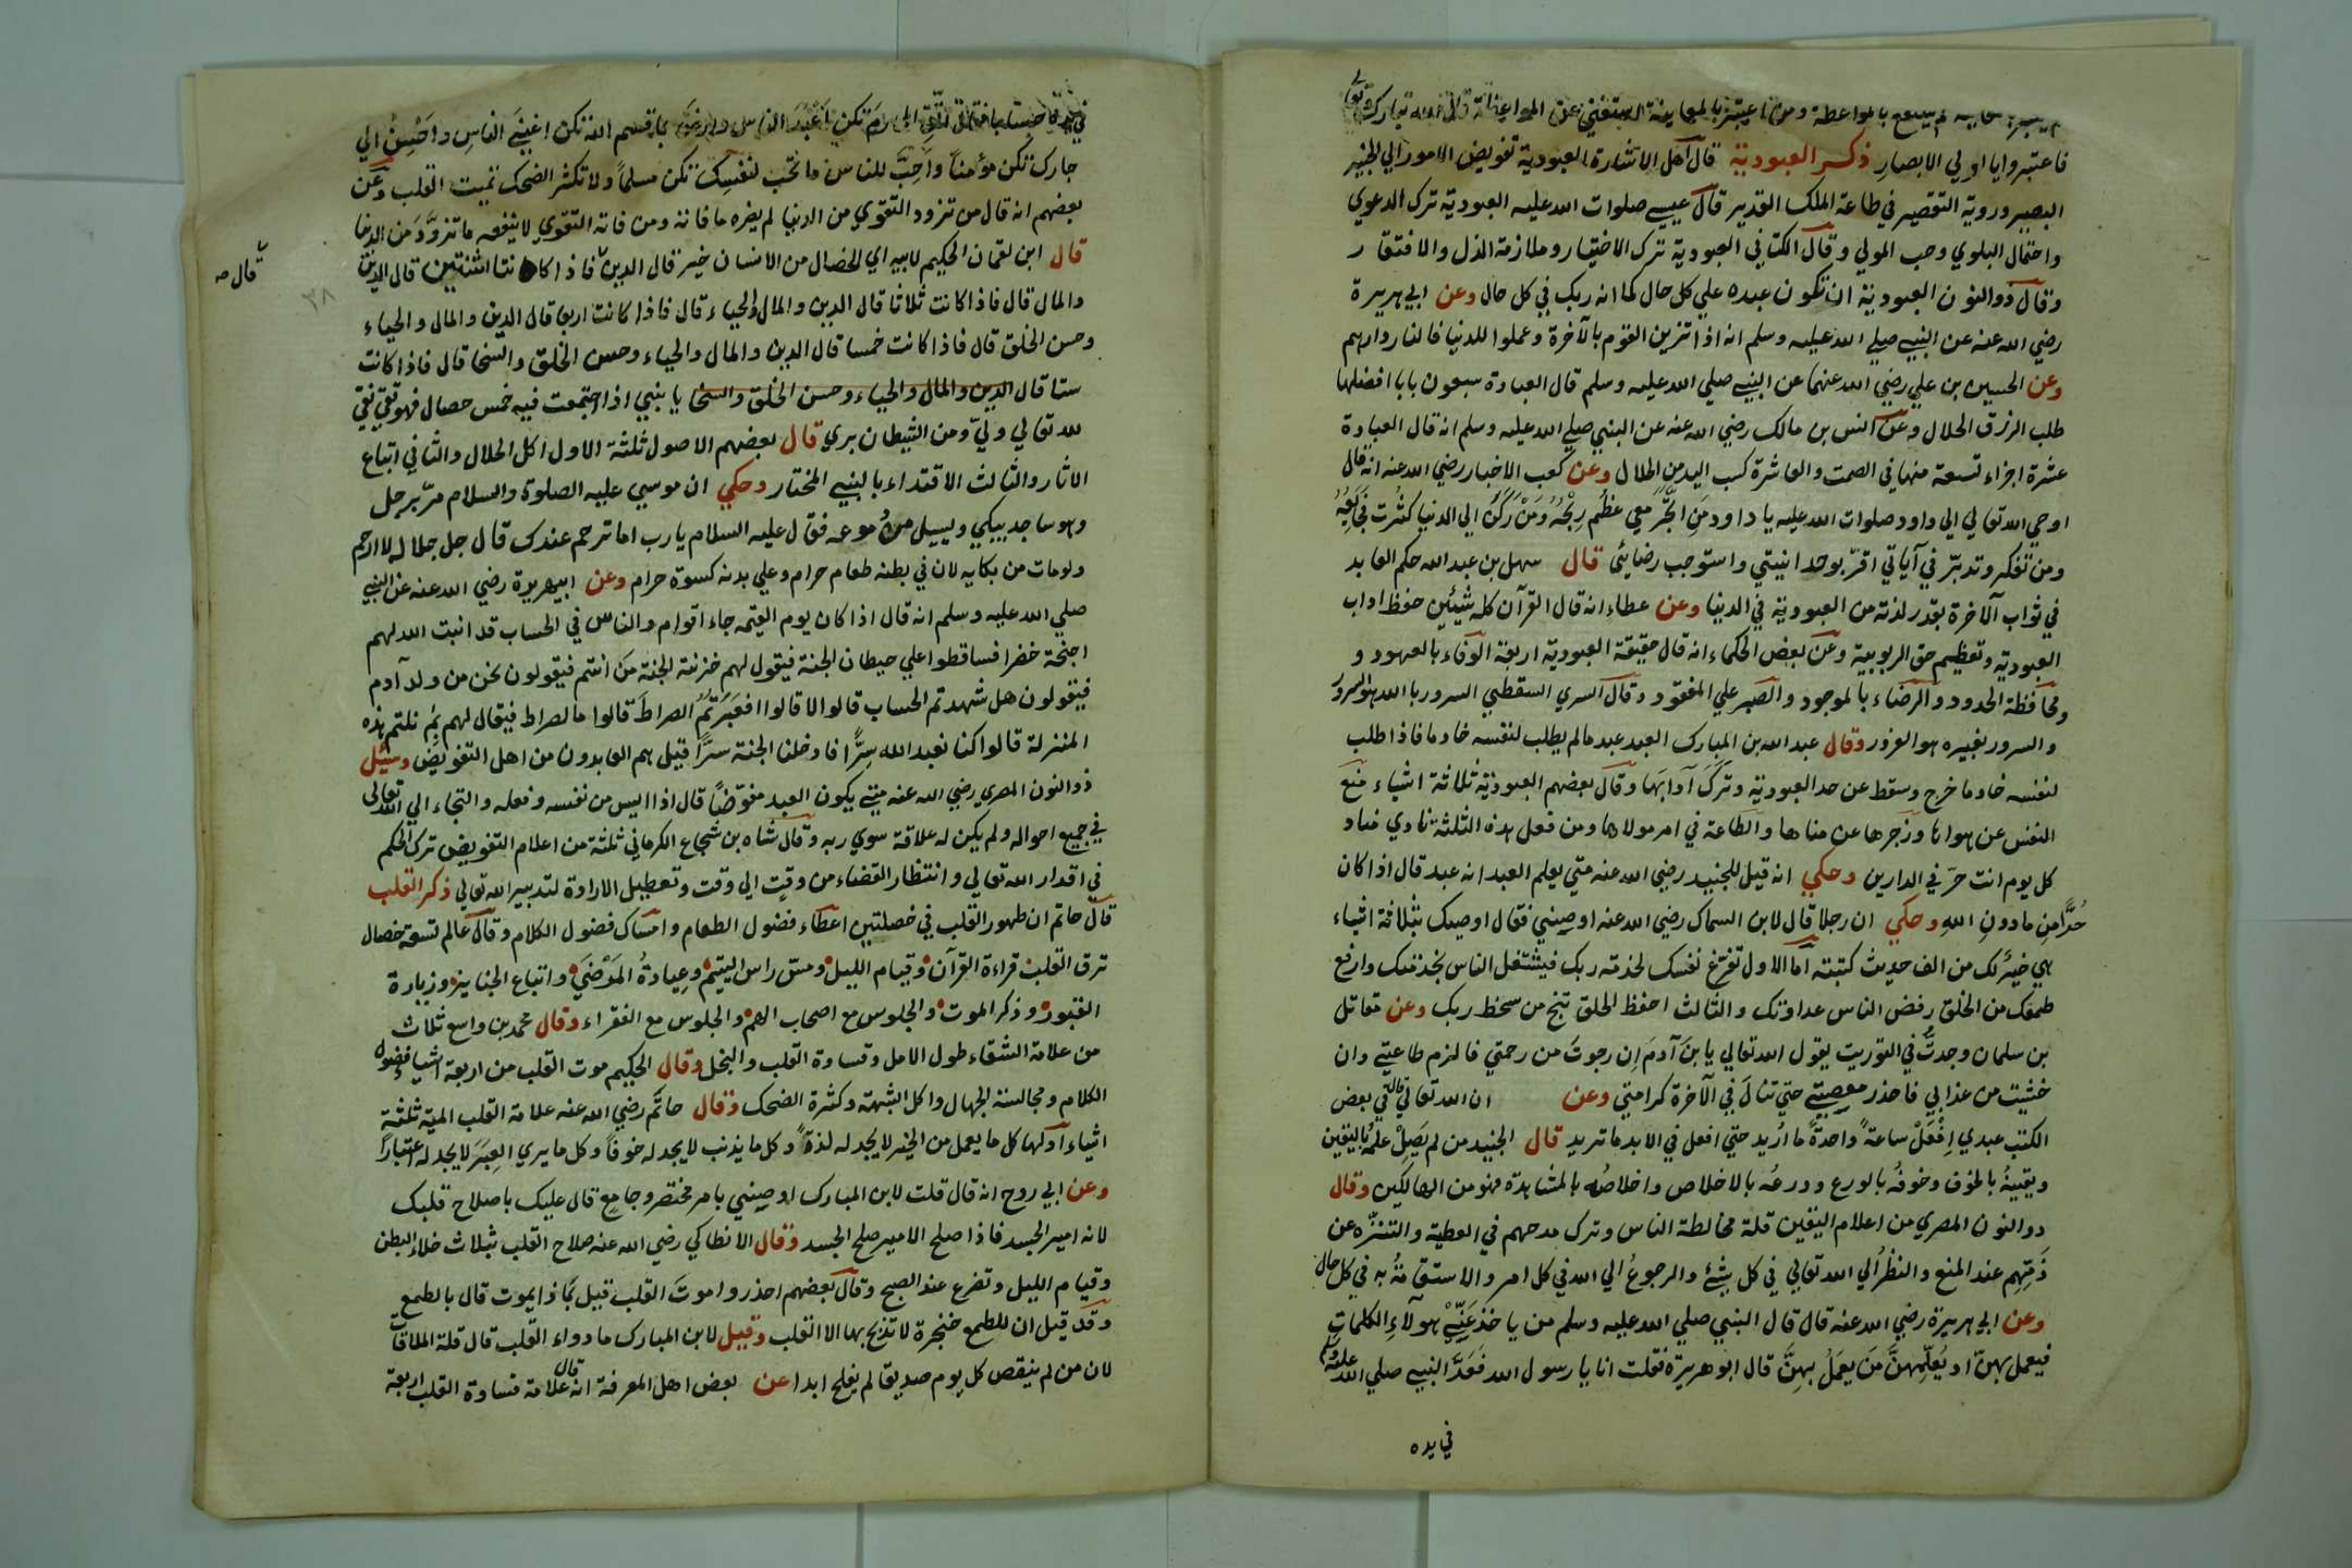 لم ينتفع بالمواعظة ومن اعتبر بالمعاينة استغني عن المواعظة قال الله تبارك وتعالى
فاعتبروا يا اولي الابصار ذكر العبودية قال اهل الاشارة العبودية تفويض الامور الي الخبير
البصير وروية التقصير في طاعة الملك القدير قال عيسي صلوات الله عليه العبودية ترك الدعوي
واحتمال البلوي وحب المولي وقال الكتاني العبودية ترك الاختيار وملازمة الذل والافتقار
وقال ذوالنون العبودية ان تكون عبده علي كل حال كما انه ربك في كل حال وعن ابي هريرة
رضي الله عنه عن النبي صلي الله عليه وسلم انه اذا تزين القوم بالآخرة وعملوا للدنيا فالنار دارهم
وعن الحسين بن علي رضي الله عنهما عن النبي صلي الله عليه وسلم قال العبادة سبعون بابا افضلها
طلب الرزق الحلال وعن انس بن مالك رضي الله عنه عن النبي صلي الله عليه وسلم انه قال العبادة
عشرة اجزاء تسعة منها في الصمت والعاشرة كسب اليد من الحلال وعن كعب الاخبار رضي الله عنه انه قال
اوحي الله تعالي الي داود صلوات الله عليه يا داود من اتجر معي عظم ربحه ومن ركن الي الدنيا كثرت فجايعه
ومن تفكر وتدبر في آياتي اقر بوحدانيتي واستوجب رضائي قال سهل بن عبد الله حكم العابد
في ثواب آلاخرة بقدر لذته من العبودية في الدنيا وعن عطاء انه قال القرآن كله شيئين حفظ اداب
العبودية وتعظيم حق الربوبية وعن بعض الحكماء انه قال حقيقة العبودية اربعة الوفاء بالعهود و
ومحافظة الحدود والرضاء بالموجود والصبر علي المفقود وقال السري السقطي السرور بالله هو السرور
والسرور بغيره هو الغرور وقال عبد الله بن المبارك العبد عبد مالم يطلب لنفسه خادما فاذا طلب
لنفسه خادما خرج وسقط عن حد العبودية وترك آدابها وقال بعضهم العبودية ثلاثة اشياء منع
النفس عن هواها وزجرها عن مناها والطاعة في امر مولاها ومن فعل هذه الثلثة نادي مناد
كل يوم انت حر في الدارين وحكي انه قيل للجنيد رضي الله عنه متي يعلم العبد انه عبد قال اذا كان
حرا من مادون الله وحكي ان رجلا قال لابن السماك رضي الله عنه اوصيني فقال اوصيك بثلاثة اشياء
هي خير لك من الف حديث كتبته اما الاول تفرغ نفسك لخدمة ربك فيشتغل الناس بخدمتك وارفع
طمعك من الخلق رفض الناس عداوتك والثالث احفظ الحلق تنج من سخط ربك وعن مقاتل
بن سلمان وجدت في التوريت يقول الله تعالي يا بن آدم ان رجوت من رحمتي فالزم طاعتي وان
خشيت من عذابي فاحذر معصيتي حتي تنال في الآخرة كرامتي وعن ان الله تعالي قال في بعض
الكتب عبدي افعل ساعة واحدة ما اريد حتي افعل في الابد ما تريد قال الجنيد من لم يصل علمه باليقين
ويقينه بالخوف وخوفه بالورع وورعه بالاخلاص واخلاصه بالمشاهدة فهو من الهالكين وقال
دوالنون المصري من اعلام اليقين قلة مخالطة الناس وترك مدحهم في العطية والتنزه عن
ذمتهم عند المنع والنظر الي الله تعالي في كل شئ والرجوع الي الله في كل امر والاستقامة به في كل حال
وعن ابي هريرة رضي الله عنه قال قال النبي صلي الله عليه وسلم من ياخذ عني هولآء الكلمات
فيعمل بهن او يعلمهن من يعمل بهن قال ابو هريرة فقلت انا يا رسول الله فعد النبي صلي الله عليه وسلم
في يده
تكن اعبد الناس وارض بما قسم الله تكن اغني الناس واحسن الي
جارك تكن مؤمنا واحب للناس ما تحب لنفسك تكن مسلما ولا تكثر الضحك تميت القلب وعن
بعضهم انه قال من تزود التقوي من الدنيا لم يضره ما فاته ومن فاته التقوي لا ينفعه ما تزود من الدنيا
قال ابن لقمان الحكيم لابيه اي الخصال من الانسان خير قال الدين فاذا كانتا اثنتين قال الدين
قال صه
٣٨
والمال قال فاذا كانت ثلاثا قال الدين والمال والحياء قال فاذا كانت اربعا قال الدين والمال والحياء
وحسن الخلق قال فاذا كانت خمسا قال الدين والمال والحياء وحسن الخلق والسخا قال فاذا كانت
ستا قال الدين والمال والحياء وحسن الخلق والسخا يا بنبي اذا اجتمعت فيه خمس خصال فهو تقي نقي
لله تعالي ولي ومن الشيطان بري قال بعضهم الاصول ثلثة الاول اكل الحلال والثاني اتباع
الاثار والثالث الاقتداء بالنبي المختار وحكي ان موسي عليه الصلوة والسلام مر برجل
وهو ساجد يبكي ويسيل دموعه فقال عليه السلام يا رب اما ترحم عبدك قال جل جلاله لا ارحم
ولو مات من بكايه لان في بطنه طعام حرام وعلي بدنه كسوة حرام وعن ابيهريرة رضي الله عنه عن النبي
صلي الله عليه وسلم انه قال اذا كان يوم القيمه جاء اقوام والناس في الحساب قد انبت الله لهم
اجنحة خضرا فساقطوا علي حيطان الجنة فيقول لهم خزنة الجنة من انتم فيقولون نحن من ولد آدم
فيقولون هل شهدتم الحساب قالوا لا قالوا افعبرتم الصراط قالوا ما لصراط فيقال لهم بم نلتم هذه
المنزلة قالوا كنا نعبد الله سرا فادخلنا الجنة سرا قيل هم العابدون من اهل التفويض وسئل
ذوالنون المصري رضي الله عنه متي يكون العبد مفوضا قال اذا ايس من نفسه وفعله والتجاء الي الله تعالى
في جميع احواله ولم يكن له علاقة سوي ربه وقال شاه بن شجاع الكرماني ثلثة من اعلام التفويض ترك الحكم
في اقدار الله تعالي وانتظار القضاء من وقت الي وقت وتعطيل الارادة لتدبير الله تعالي ذكر القلب
قال حاتم ان طهور القلب في خصلتين اعطاء فضول الطعام وامساك فضول الكلام وقال عالم تسعة خصال
ترق القلب قراءة القرآن وقيام الليل ومسح راس اليتيم وعيادة المرضي واتباع الجنايز وزيارة
القبور وذكر الموت والجلوس مع اصحاب الهم والجلوس مع الفقراء وقال محمد بن واسع ثلاث
من علامة الشقاء طول الامل وقساوة القلب والبخل وقال الحكيم موت القلب من اربعة اشياء فضول
الكلام ومجالسة الجهال واكل الشبهة وكثرة الضحك وقال حاتم رضي الله عنه علامة القلب الميت ثلثة
اشياء اولها كل ما يعمل من الخير لا يجد له لذة وكل ما يذنب لا يجد له خوفا وكل ما يري العبر لا يجد له اعتبارا
وعن ابي روح انه قال قلت لابن المبارك اوصيني بامر مختصر وجامع قال عليك باصلاح قلبك
لانه امير الجسد فاذا صلح الامير صلح الجسد وقال الانطاكي رضي الله عنه صلاح القلب بثلاث خلاء البطن
وقيام الليل وتضرع عند الصبح وقال بعضهم احذروا موت القلب قيل بماذا يموت قال بالطمع
وقد قيل ان للطمع خنجرة لا تذبح بها الا القلب وقيل لابن المبارك ما دواء القلب قال قلة الملاقات
لان من لم ينقص كل يوم صديقا لم يفلح ابدا عن بعض اهل المعرفة انه قال علامة قساوة القلب اربعة